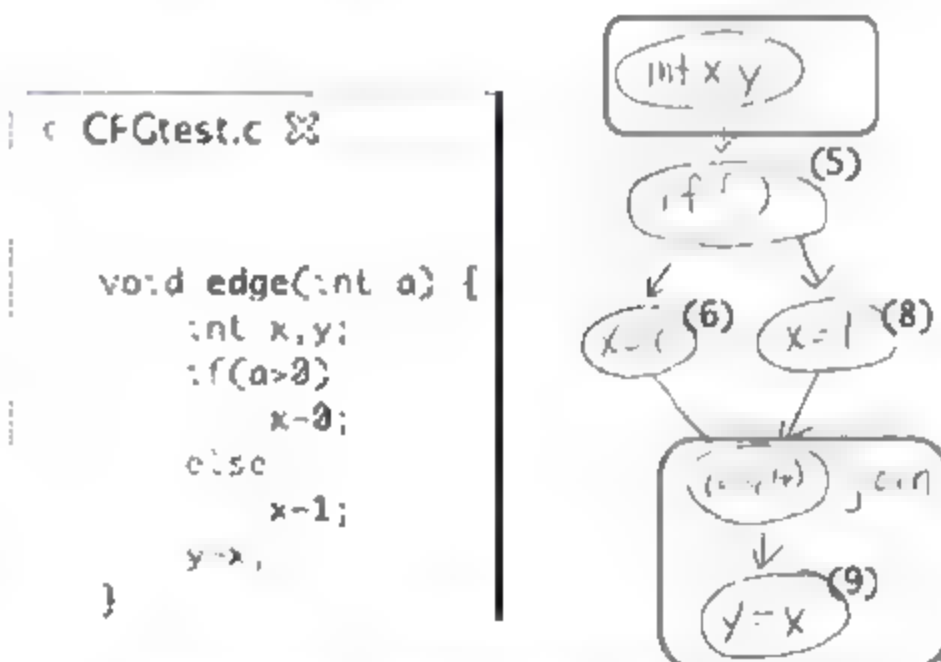 CFGtest.c
void edge(int a) {
int x,y;
if(a>0)
x=0;
else
x=1;
y=x;
}
int x y
if ( ) (5)
(6)
x=1 (8)
join
y=x (9)